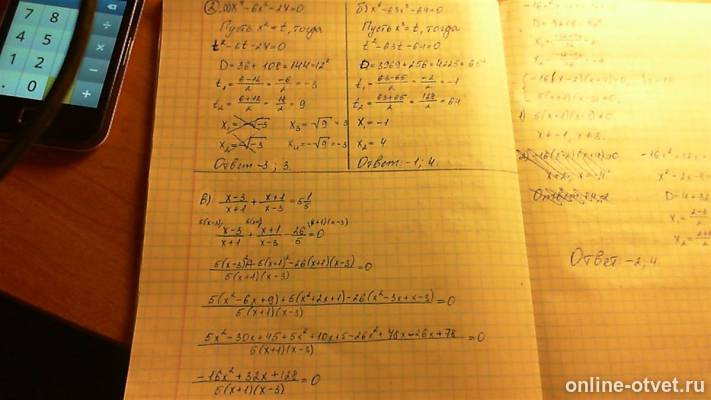 2. а) x⁴-6x²-27=0
Пусть x²=t, тогда
t²-6t-27=0
D=36+108=144=12²
t₁=(6-12)/2=-6/2=-3
t₂=(6+12)/2=18/2=9
x₁=√-3 x₃=√9=3
x₂=-√-3 x₄=-√9=-3
Ответ -3; 3.
б) x⁶-63x³-64=0
Пусть x³=t, тогда
t²-63t-64=0
D=3969+256=4225=65²
t₁=(63-65)/2=-2/2=-1
t₂=(63+65)/2=128/2=64
x₁=-1
x₂=4
Ответ: -1; 4.
в) (x-3)/(x+1)+(x+1)/(x-3)=5 1/5
(x-3)/(x+1)+(x+1)/(x-3)-26/5=0
(5(x-3)²+5(x+1)²-26(x+1)(x-3))/(5(x+1)(x-3))=0
(5(x²-6x+9)+5(x²+2x+1)-26(x²-3x+x-3))/(5(x+1)(x-3))=0
(5x²-30x+45+5x²+10x+5-26x²+78x-26x+78)/(5(x+1)(x-3))=0
(-16x²+32x+128)/(5(x+1)(x-3))=0
1) 5(x+1)(x-3)≠0
x≠-1, x≠3
-16x²+32x
x²-2x-8
D=4+32
Ответ: -2; 4.
7 8 9
0 #
online-otvet.ru